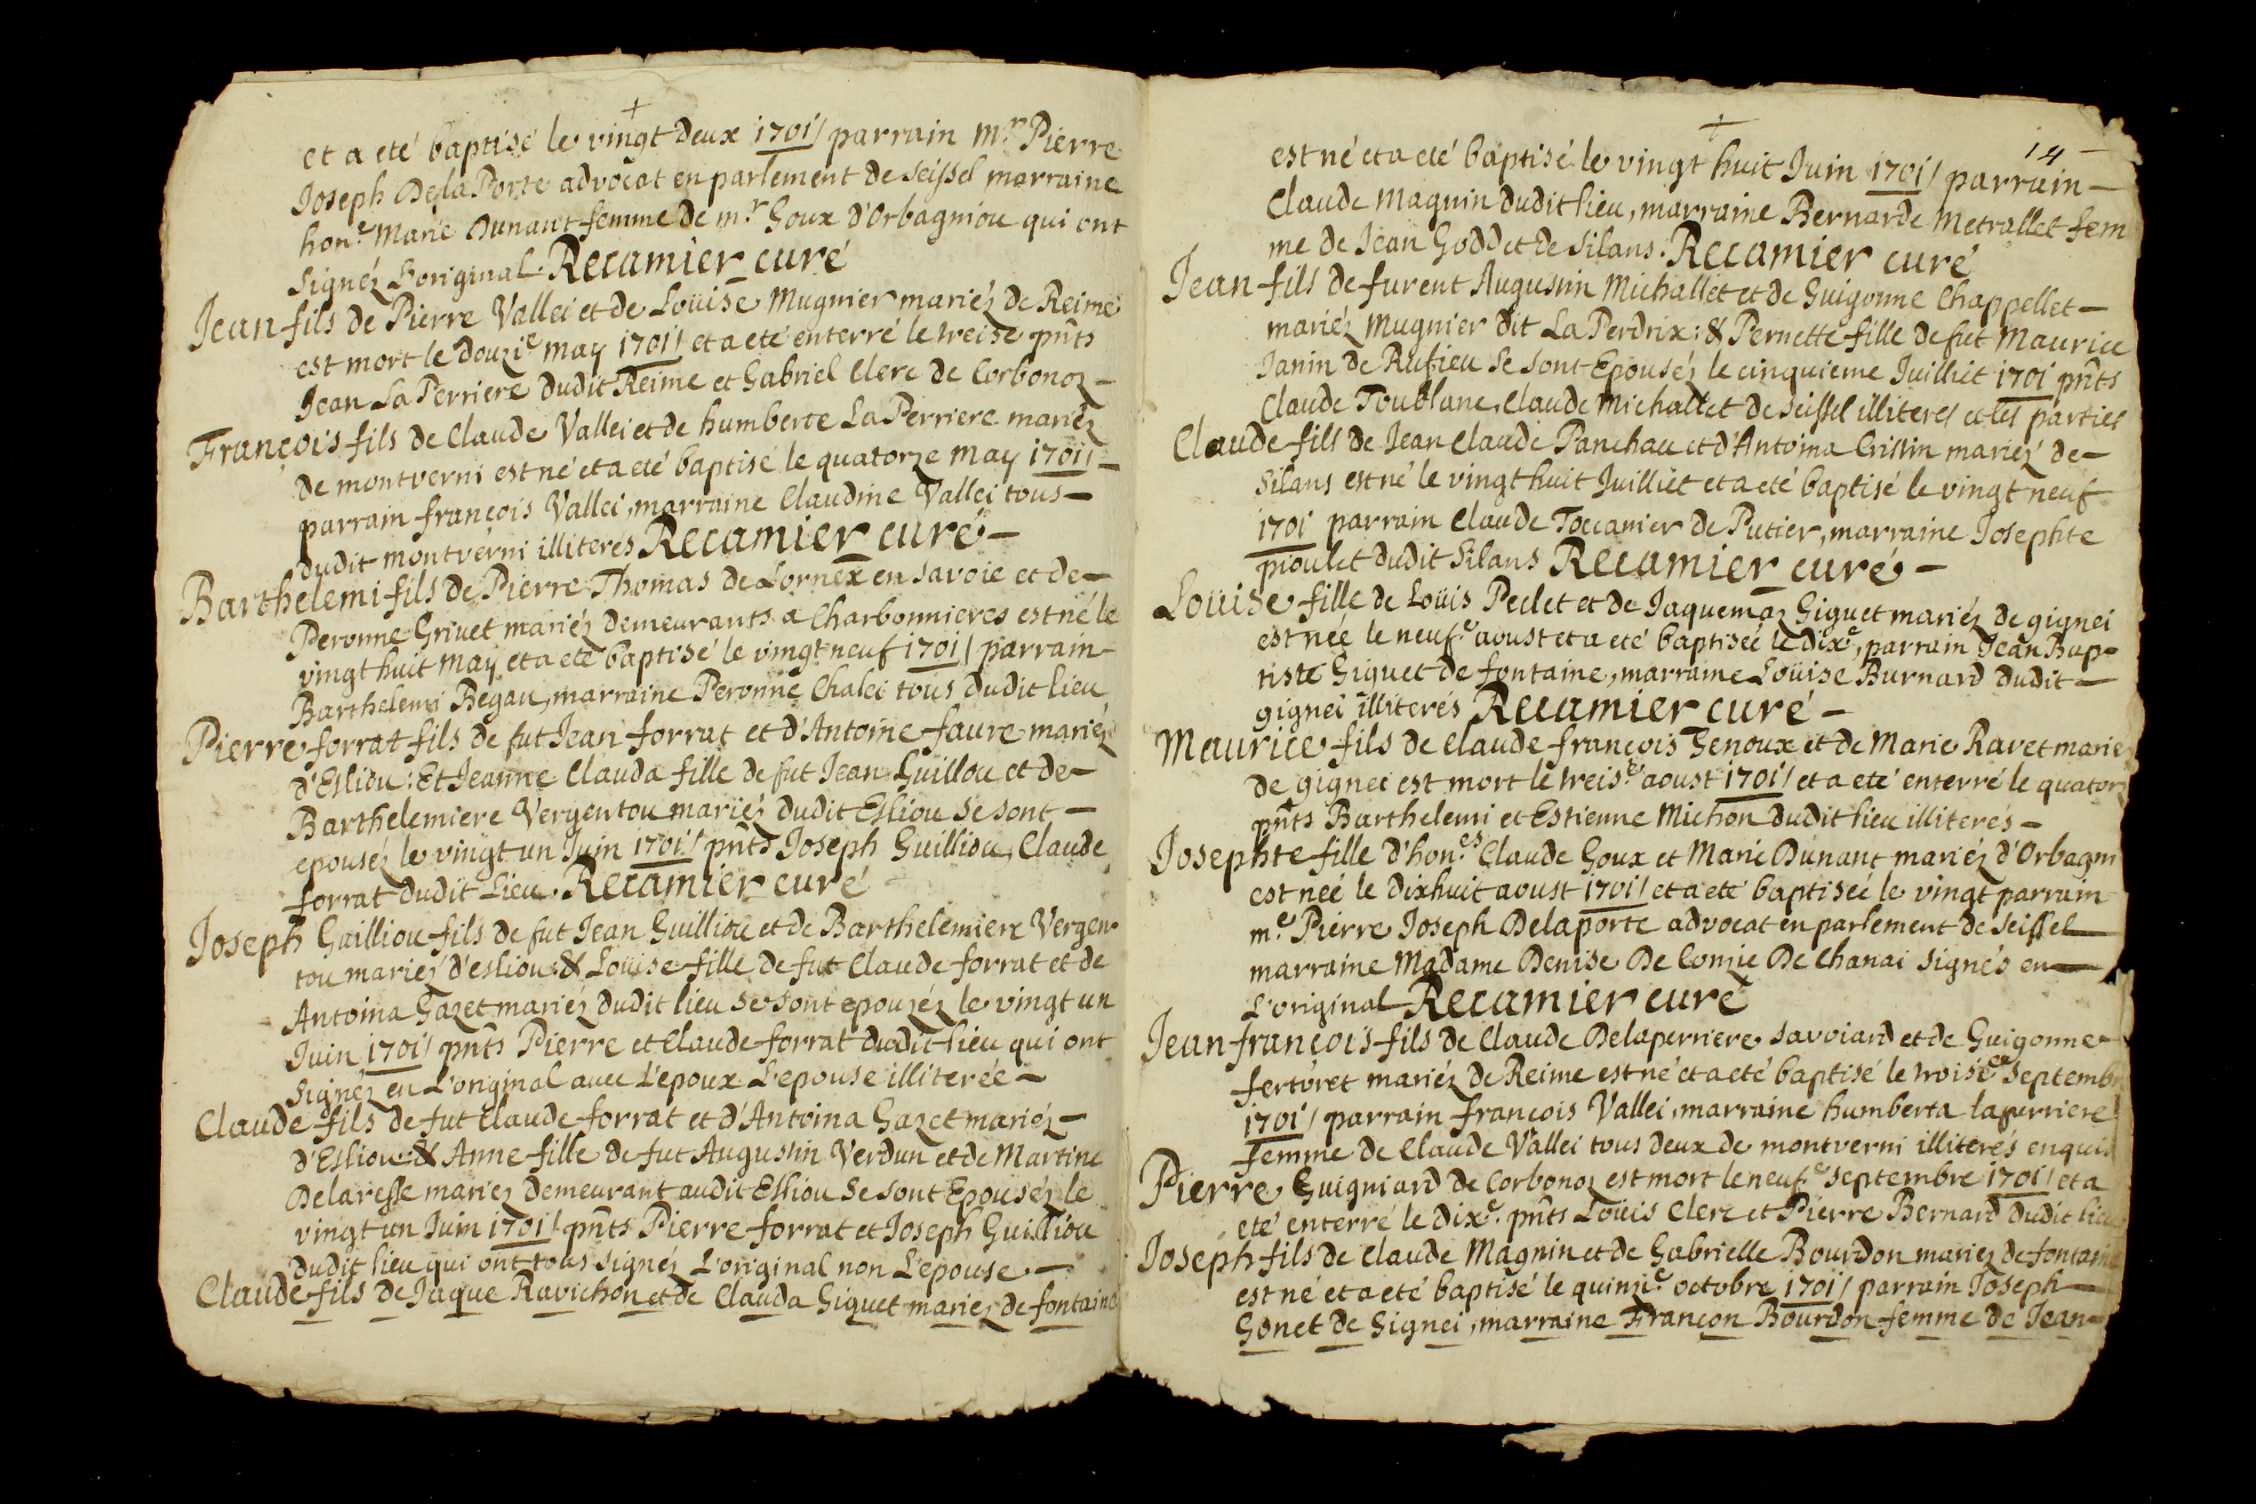 +
et a eté baptisé le vingt deux 1701/ parrain mr. Pierre
Joseph De la Porte advocat en parlement de Seissel marraine
hone. Marie Dunant femme de mr. Goux d'Orbagniou qui ont
signéz L'original. Recamier curé
Jean fils de Pierre Vallei et de Loüise Mugnier mariéz de Reime
est mort le douzie. may 1701/ et a eté enterré le treise pnts
Jean La Perriere dudit Reime et Gabriel Clerc de Corbonoz –
François fils de Claude Vallei et de humberte La Perriere mariéz
de montverni est né et a eté baptisé le quatorze may 1701/ –
parrain françois Vallei, marraine Claudine Vallei tous –
dudit montverni illiteres Recamier curé –
Barthelemi fils de Pierre Thomas de Lornex en savoie et de –
Peronne Grivet mariéz demeurants a Charbonnieres est né le
vingt huit may et a eté baptisé le vingt neuf 1701/ parrain –
Barthelemi Begau, marraine Peronne Chalei tous dudit lieu
Pierre forrat fils de fut Jean forrat et d'Antoine faure mariéz
d'Esliou: Et Jeanne Clauda fille de fut Jean Guillou et de –
Barthelemiere Vergentou mariéz dudit Esliou se sont –
epouséz le vingt un Juin 1701/ pnts Joseph Guilliou, Claude
forrat dudit Lieu. Recamier curé
Joseph Guilliou fils de fut Jean Guilliou et de Barthelemiere Vergen-
tou mariéz d'esliou & Loüise fille de fut Claude forrat et de
Antoina Gazet mariéz dudit lieu se sont epouzéz le vingt un
Juin 1701/ pnts Pierre et Claude forrat dudit lieu qui ont
signéz en L'original avec L'epoux L'epouse illiterée –
Claude fils de fut Claude forrat et d'Antoina Gazet mariéz –
d'Esliou: & Anne fille de fut Augustin Verdun et de Martine
Delaresse mariez demeurant audit Esliou se sont Epouséz le
vingt un Juin 1701/ pnts Pierre forrat et Joseph Guilliou
dudit lieu qui ont tous signéz L'original non L'epouse –
Claude fils de Jaque Ravichon et de Clauda Giguet mariez de fontaine
+
14 –
est né et a eté baptisé le vingt huit Juin 1701/ parrain –
Claude Magnin dudit lieu, marraine Bernarde Metrallet fem
me de Jean Goddet de Silans. Recamier curé
Jean fils de furent Augustin Michallet et de Guigonne Chappellet –
mariéz Mugnier dit La Perdrix: & Pernette fille de fut Maurice
Janin de Rufieu se sont Epouséz le cinquieme Juilliet 1701 pnts
Claude Toublanc, Claude Michallet de Seissel illiteres et les parties
Claude fils de Jean Claude Panchau et d'Antoina Cristin mariéz de –
Silans est né le vingt huit Juilliet et a eté baptisé le vingt neuf
1701 parrain Claude Toccanier de Putier, marraine Josephte
pioulet dudit Silans Recamier curé –
Loüise fille de Loüis Peclet et de Jaquemaz Giguet mariéz de gignei
est née le neufe. aoust et a eté baptiséé le dixe, parrain Jean Bap-
tiste Giguet de fontaine, marraine Loüise Burnard dudit –
gignei illiterés Recamier curé –
Maurice fils de Claude françois Genoux et de Marie Ravet marie
de gignei est mort le treise. aoust 1701/ et a eté enterré le quatorz
pnts Barthelemi et Estienne Michon dudit lieu illiterés –
Josephte fille d'hones. Claude Goux et Marie Dunant mariéz d'Orbagni
est néé le dixhuit aoust 1701/ et a eté baptiséé le vingt parrain
me. Pierre Joseph Delaporte advocat en parlement de Seissel –
marraine Madame Denise De Comie De Chanai signés en –
L'original Recamier curé
Jean françois fils de Claude Delaperriere savoiard et de Guigonne
fertoret mariéz de Reime est né et a eté baptisé le troise. Septembr
1701/ parrain françois Vallei, marraine humberta laperriere
femme de Claude Vallei tous deux de montverni illiterés enquis
Pierre Guigniard de Corbonoz est mort le neufe. septembre 1701/ et a
eté enterré le dixe. pnts Loüis Clerc et Pierre Bernard dudit lieu
Joseph fils de Claude Magnin et de Gabrielle Bourdon mariez de fontaine
est né et a eté baptisé le quinzie. octobre 1701/ parrain Joseph –
Gonet de Gignei, marraine Françon Bourdon femme de Jean –